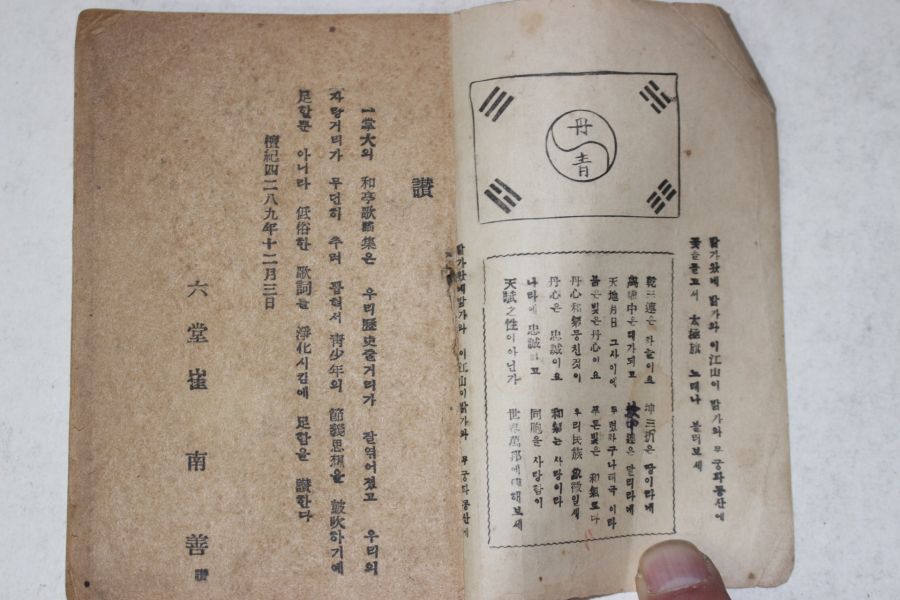 밝가왔네 밝가와 이江山이 밝가와 무궁화동산에
꽃을꽃고서 太極旗 노래나 불러보세
丹
靑
乾三連은 하늘이요 坤三折은 땅이라네
中은 해가되고 中連은 달리라네
天地月日 그사이에
붉은빛은丹心이요 푸른빛은 和氣로다
丹心和氣뭉친것이 우리民族 象徵일세
丹心은 忠誠이요 和氣는 사랑이라
나라에 忠誠하고 同胞를 사랑함이
天賦之性이아닌가 世界萬邦에 해보세
밝가왔네밝가와 이江山이밝가와 무궁화동산에
讃
一掌大의 和亭歌 集은 우리歷史줄거리가 잘엮어졌고 우리의
자랑거리가 무던히 추려 靑少年의 節義思想을 鼓吹하기에
足할뿐 아니라 低俗한 歌詞를 淨化시킴에 足함을 讃한다
檀紀四二八九年十二月三日
六堂崔南善 讃